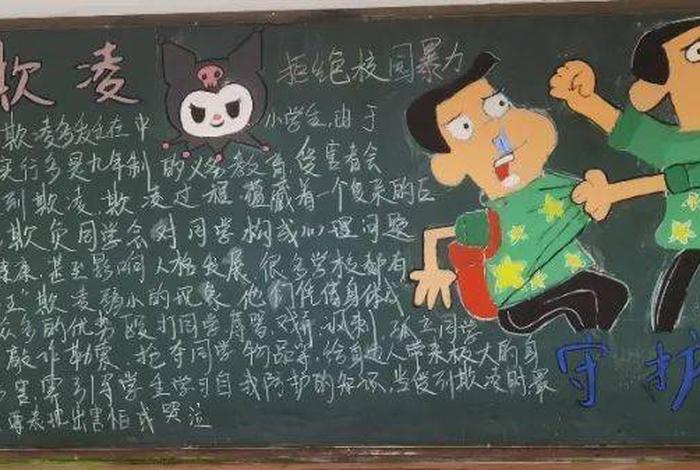 欺凌
拒绝校园暴力
欺凌多发生在中小学生,由于
实行多是九年制的义务教育受害者会
到欺凌,欺凌过程蕴藏着一个复杂的
欺负同学会对同学构成心理问题
健康,甚至影响人格发展,很多学校都有
欺凌弱小的现象,他们凭借身体或
众多的优势殴打同学辱骂戏弄讽刺,孤立同学
敲诈勒索,抢夺同学物品等,给自他人带来极大的身
害,要引导学生学习自我防护的知识,当受到欺凌时,
要表现出害怕或哭泣
守护